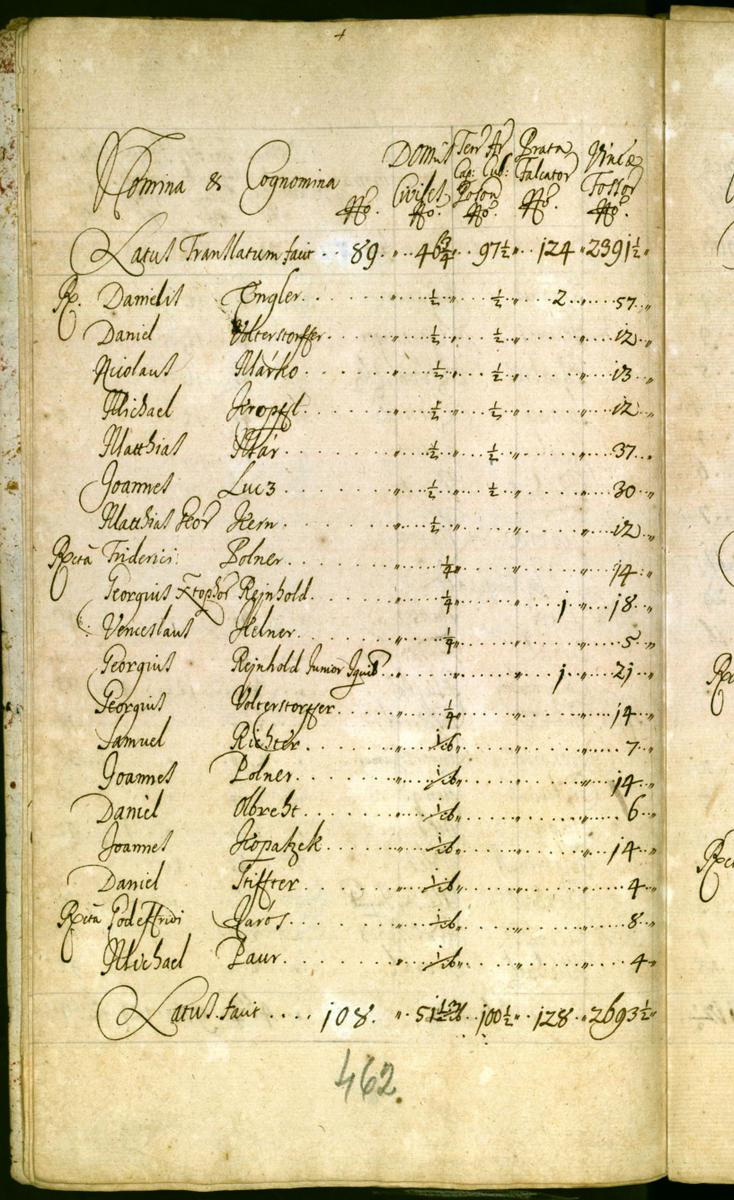 Nomina & Cognomina No.
Domus Civiles No.
Terr Ar Cap: Cub: Poson No.
Prata Falcator No.
Vineæ Fossor No.
Latus Translatum facit .. 89 " 46 3/4 " 97 1/2 " 124 " 2391 1/2 "
R. Danielis Engler . . . " 1/2 " 1/2 " 2 " 57 "
Daniel Wolterstorffer . . . " 1/2 " 1/2 " " 12 "
Nicolaus Márko . . . " 1/2 " 1/2 " " 13 "
Michael Kropffl . . . " 1/2 " 1/2 " " 12 "
Matthias Már . . . " 1/2 " 1/2 " " 37 "
Joannes Lucz . . . " 1/2 " 1/2 " " 30 "
Matthias Geor Kern . . . " 1/2 " " " 12 "
Rcta Friderici Polner . . . " 1/4 " " " 14 "
Georgius Xtophor Rejnhold . . . " 1/4 " " 1 " 18 "
Venceslaus Helner . . . " 1/4 " " " 5 "
Georgius Rejnhold Junior . . . " " " 1 " 21 "
Georgius Wolterstorffer . . . " 1/4 " " " 14 "
Samuel Richter . . . " 1/6 " " " 7 "
Joannes Polner . . . " 1/6 " " " 14 "
Daniel Olbreht . . . " 1/6 " " " 6 "
Joannes Kopatzek . . . " 1/6 " " " 14 "
Daniel Stiffter . . . " 1/6 " " " 4 "
Rcta Godeffridi Jaros . . . " 1/6 " " " 8 "
Michael Paur . . . " 1/6 " " " 4 "
Latus facit .... 108. " 51 " 100 1/2 " 128 " 2693 1/2 "
462